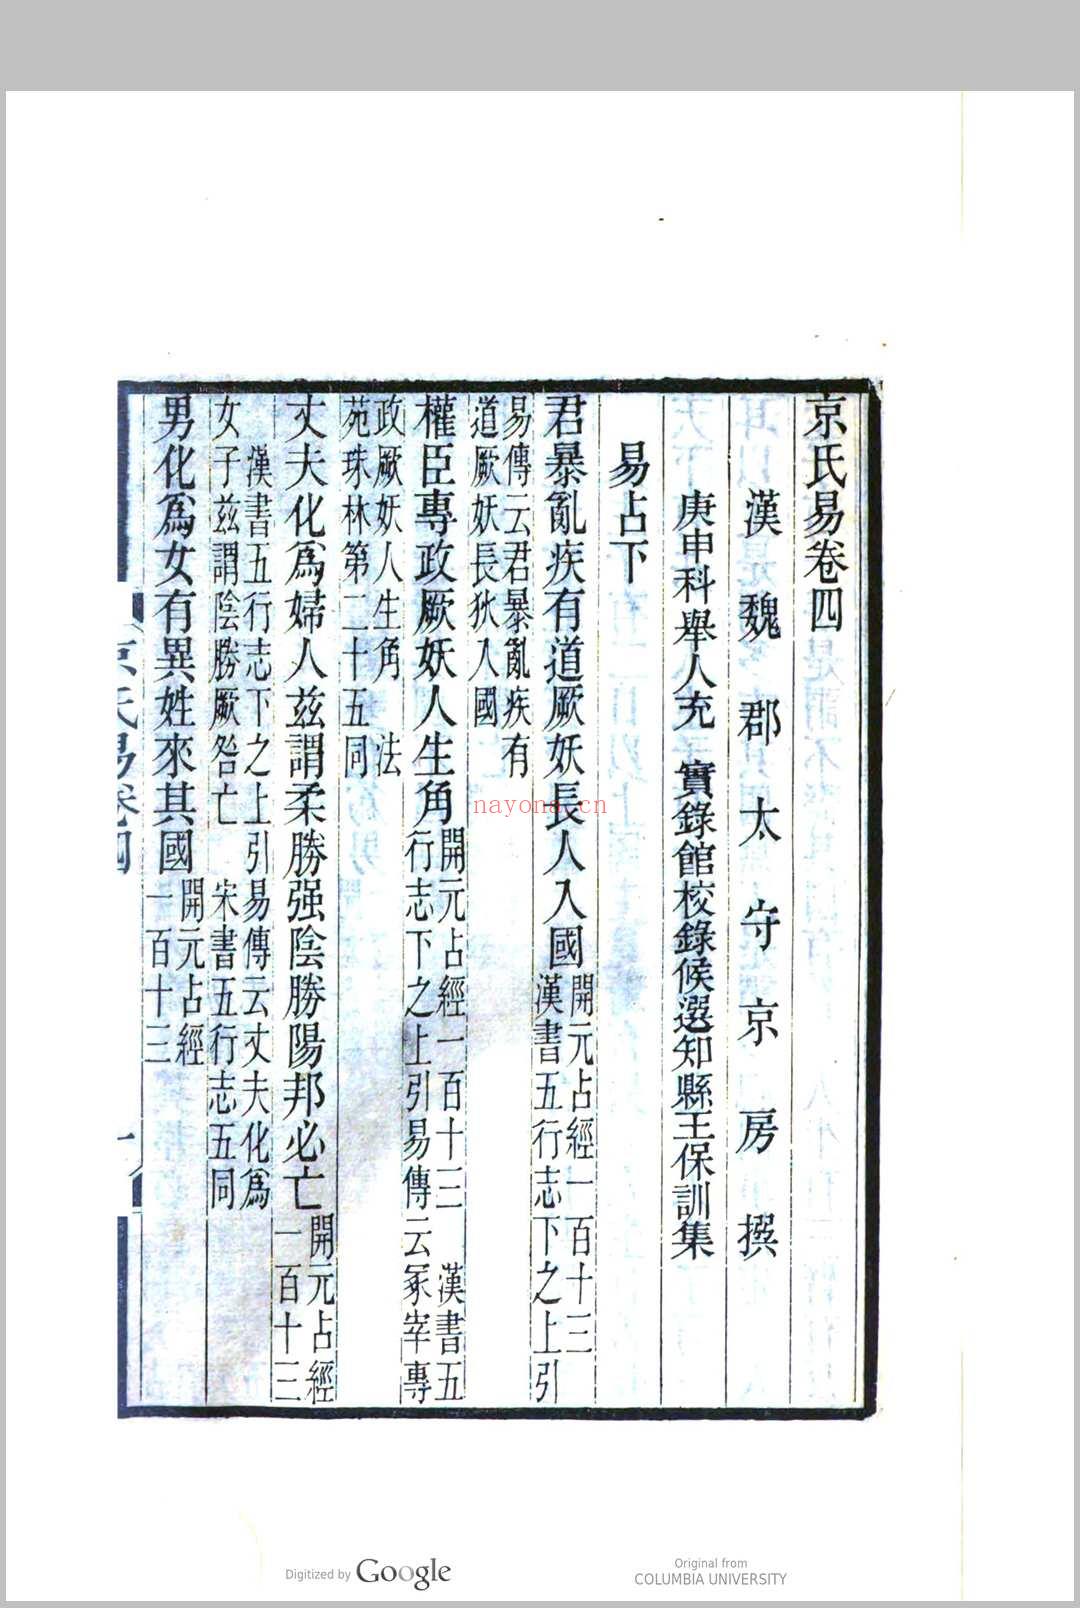 京氏易卷四
漢魏郡太守京房撰
庚申科舉人充 實錄館校錄候選知縣王保訓集
易占下
君暴亂疾有道厥妖長人入國開元占經一百十三
漢書五行志下之上引
易傳云君暴亂疾有
道厥妖長狄入國
權臣專政厥妖人生角開元占經一百十三 漢書五
行志下之上引易傳云冢宰專
政厥妖人生角 法
苑珠林第二十五同
丈夫化爲婦人茲謂柔勝强陰勝陽邦必亡開元占經
一百十三
漢書五行志下之上引易傳云丈夫化爲
女子茲謂陰勝厥咎亡 宋書五行志五同
男化爲女有異姓來其國開元占經
一百十三
京氏易卷四
一
nayona.cn
Digitized by Google
Original from
COLUMBIA UNIVERSITY